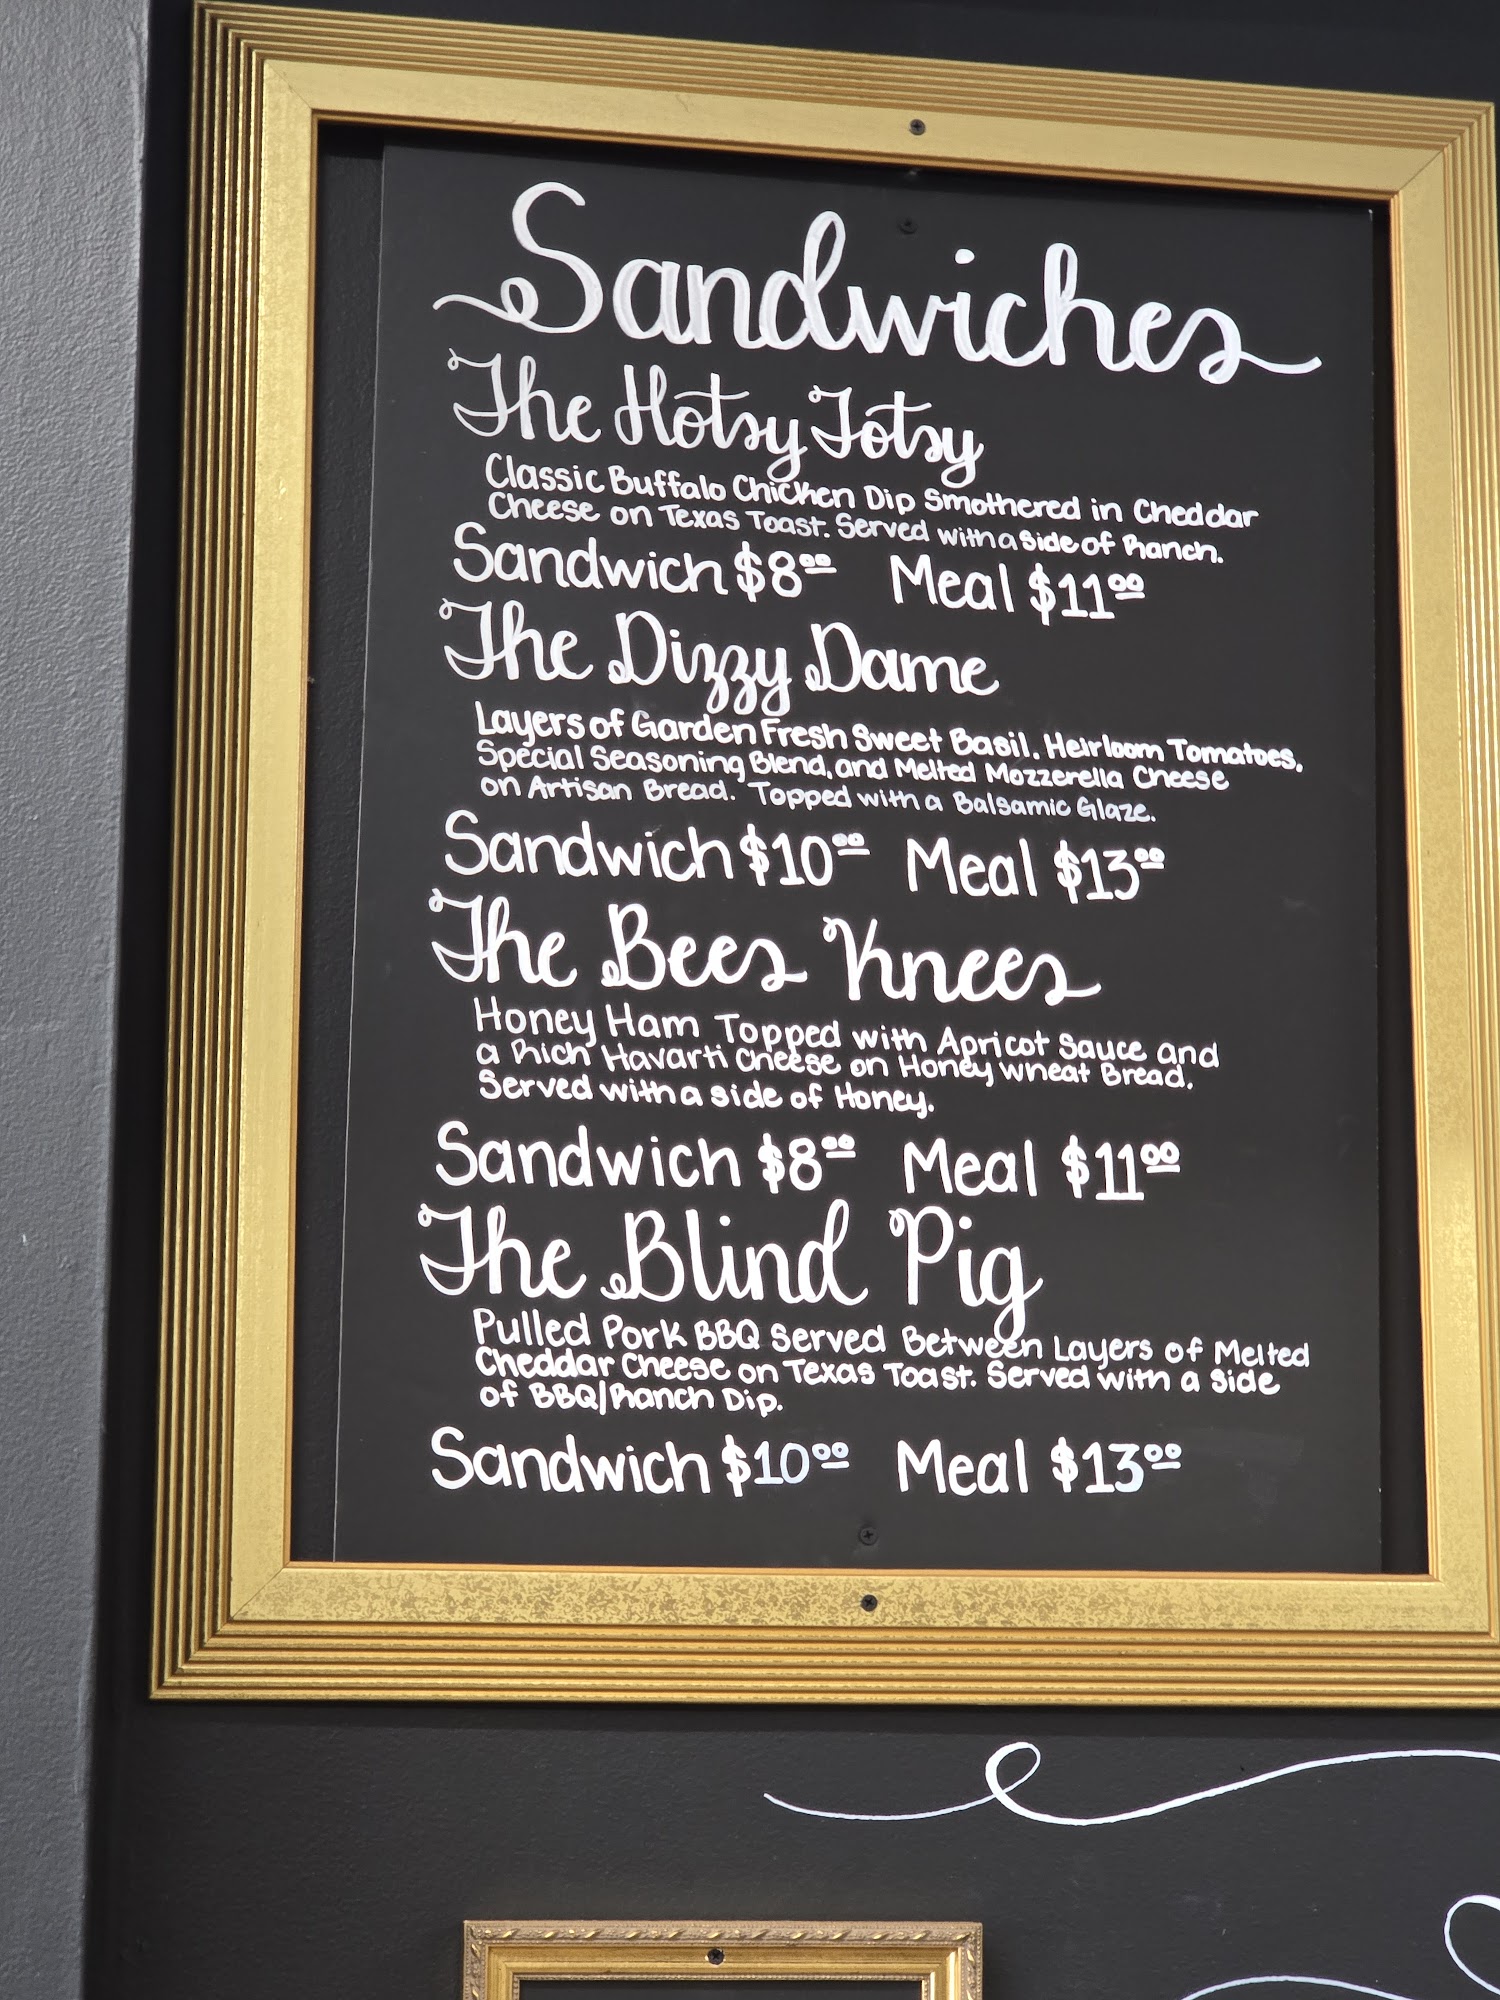 Sandwiches
The Hotsy Totsy
Classic Buffalo Chicken Dip Smothered in Cheddar
Cheese on Texas Toast. Served with a side of Ranch.
Sandwich $8.00 Meal $11.00
The Dizzy Dame
Layers of Garden Fresh Sweet Basil, Heirloom Tomatoes,
Special Seasoning Blend, and Melted Mozzerella Cheese
on Artisan Bread. Topped with a Balsamic Glaze.
Sandwich $10.00 Meal $13.00
The Bees Knees
Honey Ham Topped with Apricot Sauce and
a Rich Havarti Cheese on Honey Wheat Bread.
Served with a side of Honey.
Sandwich $8.00 Meal $11.00
The Blind Pig
Pulled Pork BBQ Served Between Layers of Melted
Cheddar Cheese on Texas Toast. Served with a side
of BBQ/Ranch Dip.
Sandwich $10.00 Meal $13.00